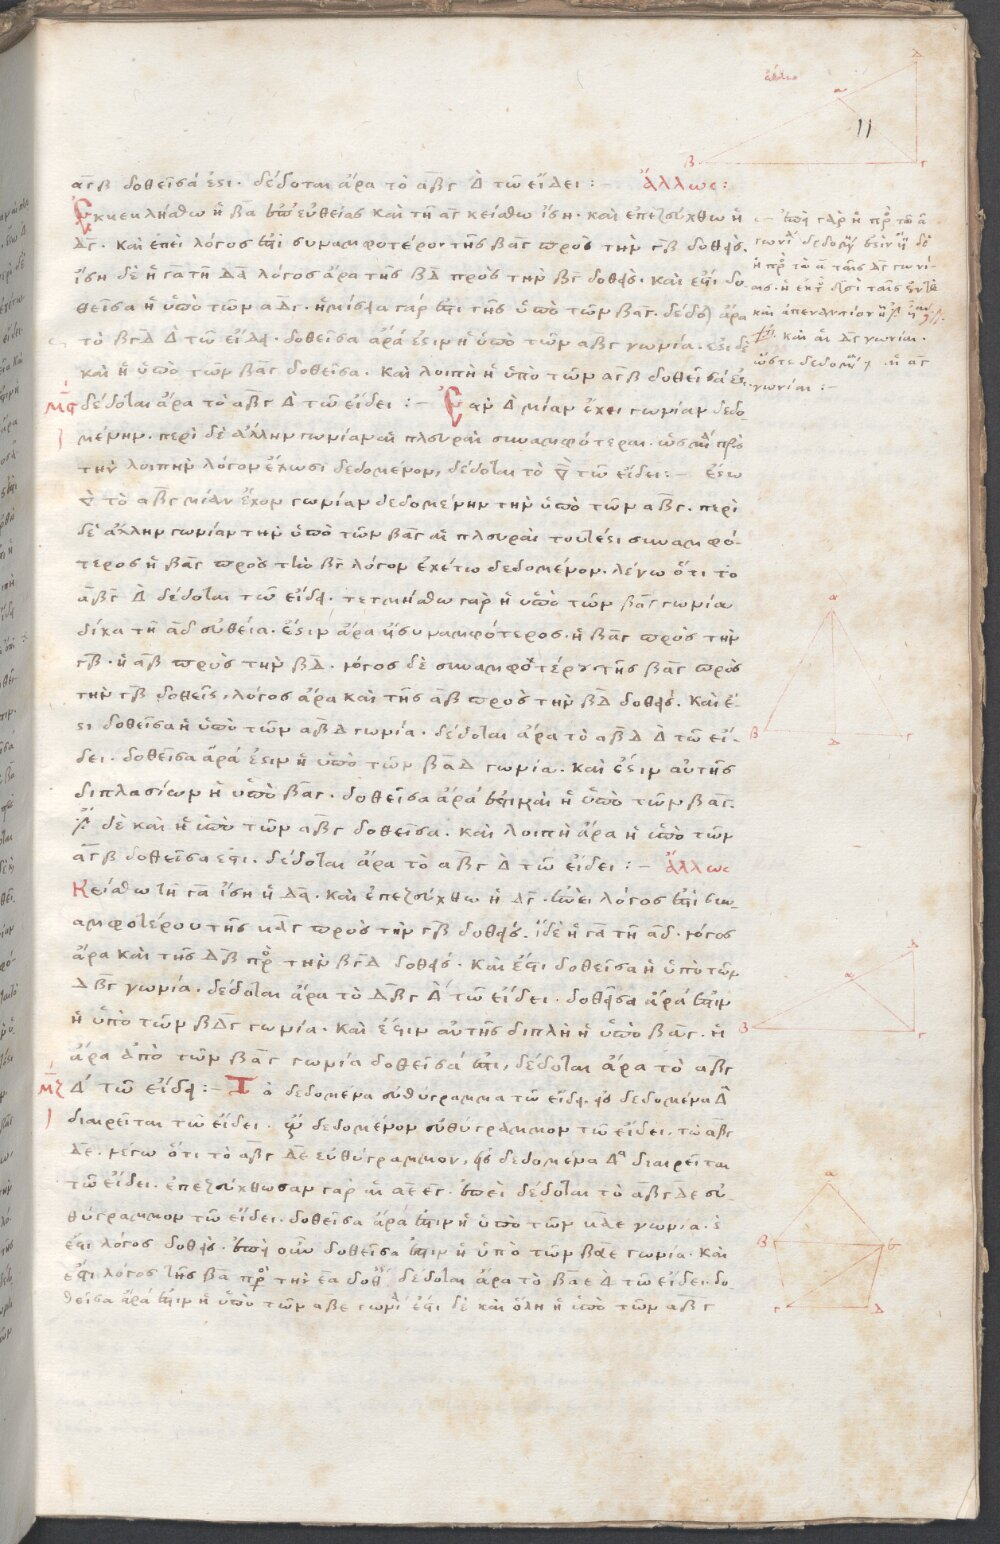 ἄλλως
11
α̅γ̅β̅ δοθεῖσά ἐστι · δέδοται ἄρα τὸ α̅β̅γ̅ Δ̀ τῶ εἴδει :– ἄλλως :
Ἐκκεκλήσθω ἡ β̅α̅ ἐπ' εὐθείας καὶ τῆ α̅γ̅ κείσθω ἴση · καὶ ἐπεζεύχθω ἡ
δ̅γ̅ · καὶ ἐπεὶ λόγος ἐστὶ συναμφοτέρου τῆς β̅α̅γ̅ πρὸς τὴν γ̅β̅ δοθείς ·
ἴση δὲ ἡ γ̅α̅ τῆ δ̅α̅ λόγος ἄρα τῆς β̅δ̅ πρὸς τὴν β̅γ̅ δοθείς · καὶ ἐστι δο
θεῖσα ἡ ὑπὸ τῶν α̅δ̅γ̅ · ἡμίσεια γάρ ἐστι τῆς ὑπὸ τῶν β̅α̅γ̅ · δέδοται ἄρα
τὸ β̅γ̅δ̅ Δ̀ τῶ εἴδει · δοθεῖσα ἄρά ἐστιν ἡ ὑπὸ τῶν α̅β̅γ̅ γωνία · ἔστι δὲ
καὶ ἡ ὑπὸ τῶν β̅α̅γ̅ δοθεῖσα · καὶ λοιπὴ ἡ ὑπὸ τῶν α̅γ̅β̅ δοθεῖσά ἐστι
μ̅ϛ̅ δέδοται ἄρα τὸ α̅β̅γ̅ Δ̀ τῶ εἴδει :– Ἐὰν Δ̀ μίαν ἔχει γωνίαν δεδο–
μένην · περὶ δὲ ἄλλην γωνίαν αἱ πλευραὶ συναμφότεραι · ὡς μία πρὸς
τὴν λοιπὴν λόγον ἔχωσι δεδομένον, δέδοται τὸ Δ̀ τῶ εἴδει :– ἔστω
Δ̀ τὸ α̅β̅γ̅ μίαν ἔχον γωνίαν δεδομένην τὴν ὑπὸ τῶν α̅β̅γ̅ · περὶ
δὲ ἄλλην γωνίαν τὴν ὑπὸ τῶν β̅α̅γ̅ αἱ πλευραὶ τουτέστι συναμφό–
τερος ἡ β̅α̅γ̅ πρὸς τὴν β̅γ̅ λόγον ἐχέτω δεδομένον · λέγω ὅτι τὸ
α̅β̅γ̅ Δ̀ δέδοται τῶ εἴδει · τετμήσθω γὰρ ἡ ὑπὸ τῶν β̅α̅γ̅ γωνία
δίχα τῆ α̅δ̅ εὐθεία · ἔστιν ἄρα ὡς συναμφότερος · ἡ β̅α̅γ̅ πρὸς τὴν
γ̅β̅ · ἡ α̅β̅ πρὸς τὴν β̅δ̅ · λόγος δὲ συναμφοτέρου τῆς β̅α̅γ̅ πρὸς
τὴν γ̅β̅ δοθείς, λόγος ἄρα καὶ τῆς α̅β̅ πρὸς τὴν β̅δ̅ δοθείς. Καὶ ἔ–
στι δοθεῖσα ἡ ὑπὸ τῶν α̅β̅δ̅ γωνία · δέδοται ἄρα τὸ α̅β̅δ̅ Δ̀ τῶ εἴ–
δει · δοθεῖσα ἄρά ἐστιν ἡ ὑπὸ τῶν β̅α̅δ̅ γωνία · καὶ ἔστιν αὐτῆς
διπλασίων ἡ ὑπὸ β̅α̅γ̅ · δοθεῖσα ἄρά ἐστι καὶ ἡ ὑπὸ τῶν β̅α̅γ̅ ·
ἔστι δὲ καὶ ἡ ὑπὸ τῶν α̅β̅γ̅ δοθεῖσα · καὶ λοιπὴ ἄρα ἡ ὑπὸ τῶν
α̅γ̅β̅ δοθεῖσα ἐστι · δέδοται ἄρα τὸ α̅β̅γ̅ Δ̀ τῶ εἴδει :– ἄλλως
Κείσθω τῆ γ̅α̅ ἴση ἡ δ̅α̅ · καὶ ἐπεζεύχθω ἡ δ̅γ̅ · ἐπεὶ λόγος ἐστὶ συν–
αμφοτέρου τῆς β̅α̅γ̅ πρὸς τὴν γ̅β̅ δοθείς · ἴση δὲ ἡ γ̅α̅ τῆ α̅δ̅ · λόγος
ἄρα καὶ τῆς δ̅β̅ πρὸς τὴν β̅γ̅δ̅ δοθείς · καὶ ἔστι δοθεῖσα ἡ ὑπὸ τῶν
δ̅β̅γ̅ γωνία · δέδοται ἄρα τὸ δ̅β̅γ̅ Δ̀ τῶ εἴδει · δοθεῖσα ἄρά ἐστιν
ἡ ὑπὸ τῶν β̅δ̅γ̅ γωνία · καὶ ἔστιν αὐτῆς διπλῆ ἡ ὑπὸ β̅α̅γ̅ · ἡ
ἄρα ὑπὸ τῶν β̅α̅γ̅ γωνία δοθεῖσά ἐστι, δέδοται ἄρα τὸ α̅β̅γ̅
μ̅ζ̅ Δ̀ τῶ εἴδει :– Τὰ δεδομένα εὐθύγραμμα τῶ εἴδει εἰς δεδομένα Δ̀
διαιρεῖται τῶ εἴδει · ἔστω δεδομένον εὐθύγραμμον τῶ εἴδει, τὸ α̅β̅γ̅
δ̅ε̅ · λέγω ὅτι τὸ α̅β̅γ̅ δ̅ε̅ εὐθύγραμμον, εἰς δεδομένα Δ̀ διαιρεῖται
τῶ εἴδει · ἐπεζεύχθωσαν γὰρ αἱ α̅ε̅ ε̅γ̅ · ἐπεὶ δέδοται τὸ α̅β̅γ̅δ̅ε̅ εὐ–
θύγραμμον τῶ εἴδει · δοθεῖσα ἄρά ἐστιν ἡ ὑπὸ τῶν β̅α̅ε̅ γωνία ·
ἐστι λόγος δοθείς · ἐπεὶ οὖν δοθεῖσα ἐστιν ἡ ὑπὸ τῶν β̅α̅ε̅ γωνία · καὶ
ἐστι λόγος τῆς β̅α̅ πρὸς τὴν ε̅α̅ δοθείς δέδοται ἄρα τὸ β̅α̅ε̅ Δ̀ τῶ εἴδει · δο
θεῖσα ἄρά ἐστιν ἡ ὑπὸ τῶν α̅β̅ε̅ γωνία ἔστι δὲ καὶ ὅλη ἡ ὑπὸ τῶν α̅β̅γ̅
ἐπεὶ γὰρ ἡ πρὸς τῶ α
γωνία δεδομένη ἐστὶν
ἡ πρὸς τῶ α ταῖς δ̅γ̅ γωνί–
καὶ ἀπεναντίον
καὶ αἱ δ̅γ̅ γωνίαι ·
ὥστε δεδομέν
γωνίαι :–
Δ α Β Γ
α Β Δ Γ
Δ α Β Γ
α Β ε Γ Δ